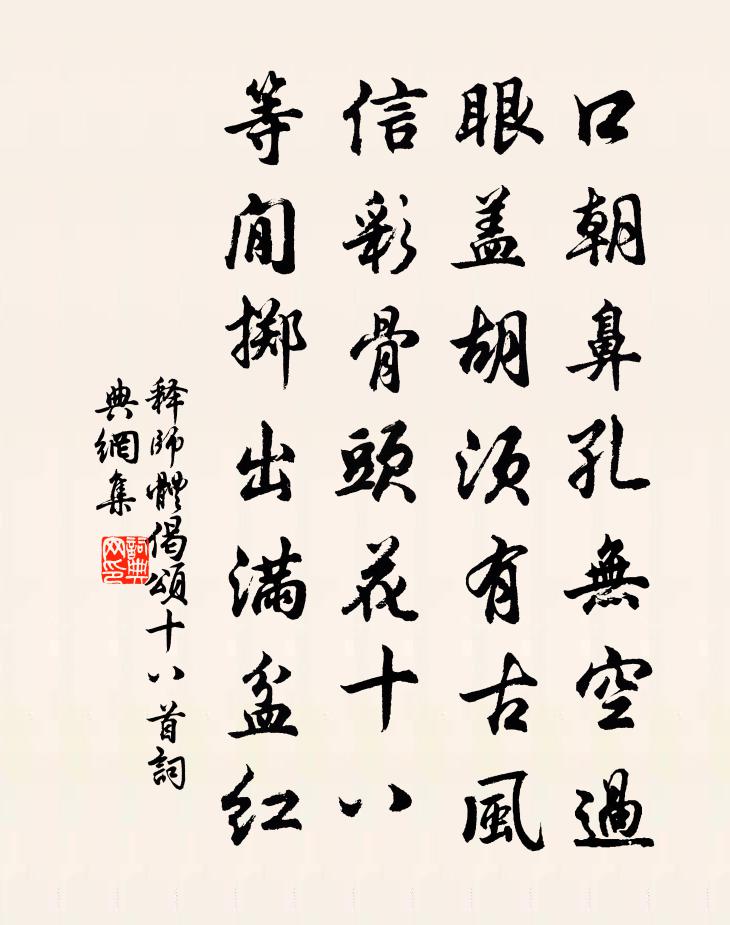 口朝鼻孔無空過
眼盖胡須有古風
信彩骨頭花十八
等閒擲出滿盆紅
释師體偈頌十八首詞
典網集
詞典
网印